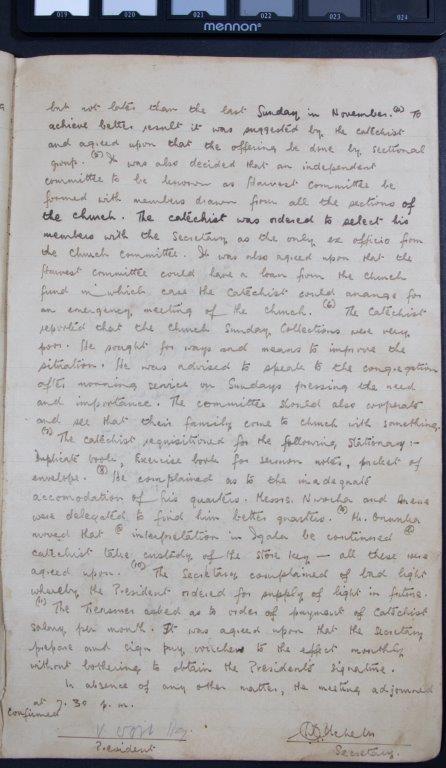 019 020 021 022 023 024
mennon
but not later than the last Sunday in November. (4) To
achieve better result it was suggested by the Catechist
and agreed upon that the offering be done by sectional
group. (5) It was also decided that an independent
committee to be known as Harvest Committee be
formed with members drawn from all the sections of
the church. The catechist was ordered to select his
members with the Secretary as the only ex officio from
the Church Committee. It was also agreed upon that the
Harvest committee could have a loan from the Church
fund in which case the Catechist could arrange for
an emergency meeting of the Church. (6) The Catechist
reported that the Church Sunday Collections were very
poor. He sought for ways and means to improve the
situation. He was advised to speak to the congregation
after morning service on Sundays pressing the need
and importance. The committee should also cooperate
and see that their family come to church with something.
(7) The Catechist requisitioned for the following stationary:-
Duplicate book, Exercise book for sermon notes, packet of
envelope. (8) He complained as to the inadequate
accomodation of his quarters. Messrs. Nwocha and
were delegated to find him better quarters. (9) Mr.
moved that interpretation in Igala be continued
catechist take custody of the store key — all these were
agreed upon. (10) The Secretary complained of bad light
whereby the President ordered for supply of light in future.
(11) The Treasurer asked as to order of payment of Catechist
salary per month. It was agreed upon that the Secretary
prepare and sign pay voucher to the effect monthly
without bothering to obtain the President's signature.
In absence of any other matter, the meeting adjourned
at 7.30 p.m.
Confirmed
President
Secretary.